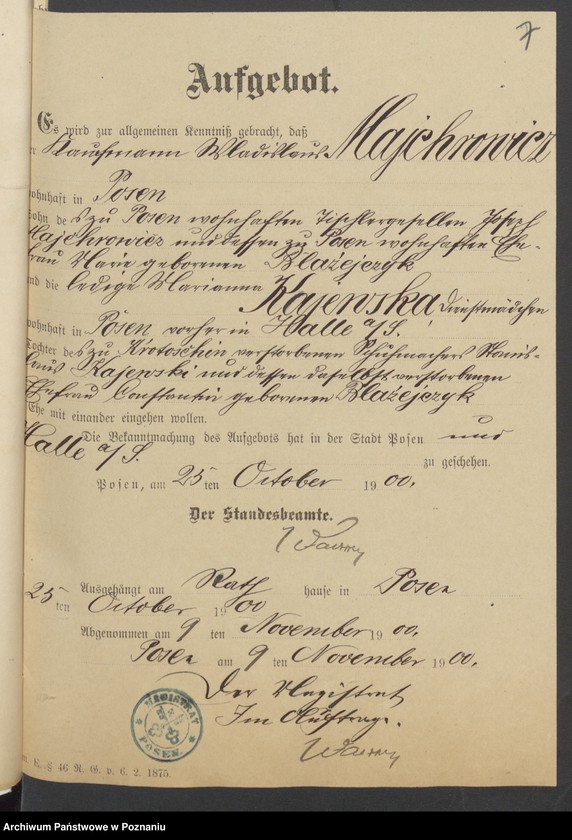 7
Aufgebot.
Es wird zur allgemeinen Kenntniß gebracht, daß
er Kaufmann Wladislaus Majchrowicz
wohnhaft in Posen
sohn des zu Posen wohnhaften Tischlergesellen Joseph
Majchrowicz und dessen zu Posen wohnhaften Ehe-
frau Marie geborenen Błażejczyk
und die ledige Marianna Kajewska, Dienstmädchen
wohnhaft in Posen vorher in Halle a/S.
Tochter des zu Krotoschin verstorbenen Schuhmachers Stanis-
laus Kajewski und dessen daselbst verstorbenen
Ehefrau Constantia geborenen Błażejczyk
Ehe mit einander eingehen wollen.
Die Bekanntmachung des Aufgebots hat in der Stadt Posen und
Halle a/S. zu geschehen.
Posen, am 25 ten October 1900.
Der Standesbeamte.
Ausgehängt am Rathhause in Posen
25 ten October 1900
Abgenommen am 9 ten November 1900.
Posen am 9 ten November 1900.
Der Magistrat
Im Auftrage.
MAGISTRAT
POSEN.
§ 46 R. G. v. 6. 2. 1875.
Archiwum Państwowe w Poznaniu